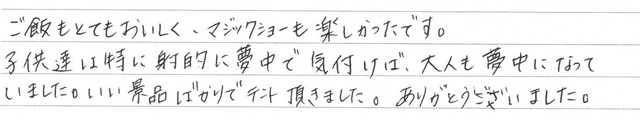 ご飯もとてもおいしく、マジックショーも楽しかったです。
子供達は特に射的に夢中で気付けば、大人も夢中になって
いました。いい景品ばかりでテント頂きました。ありがとうございました。